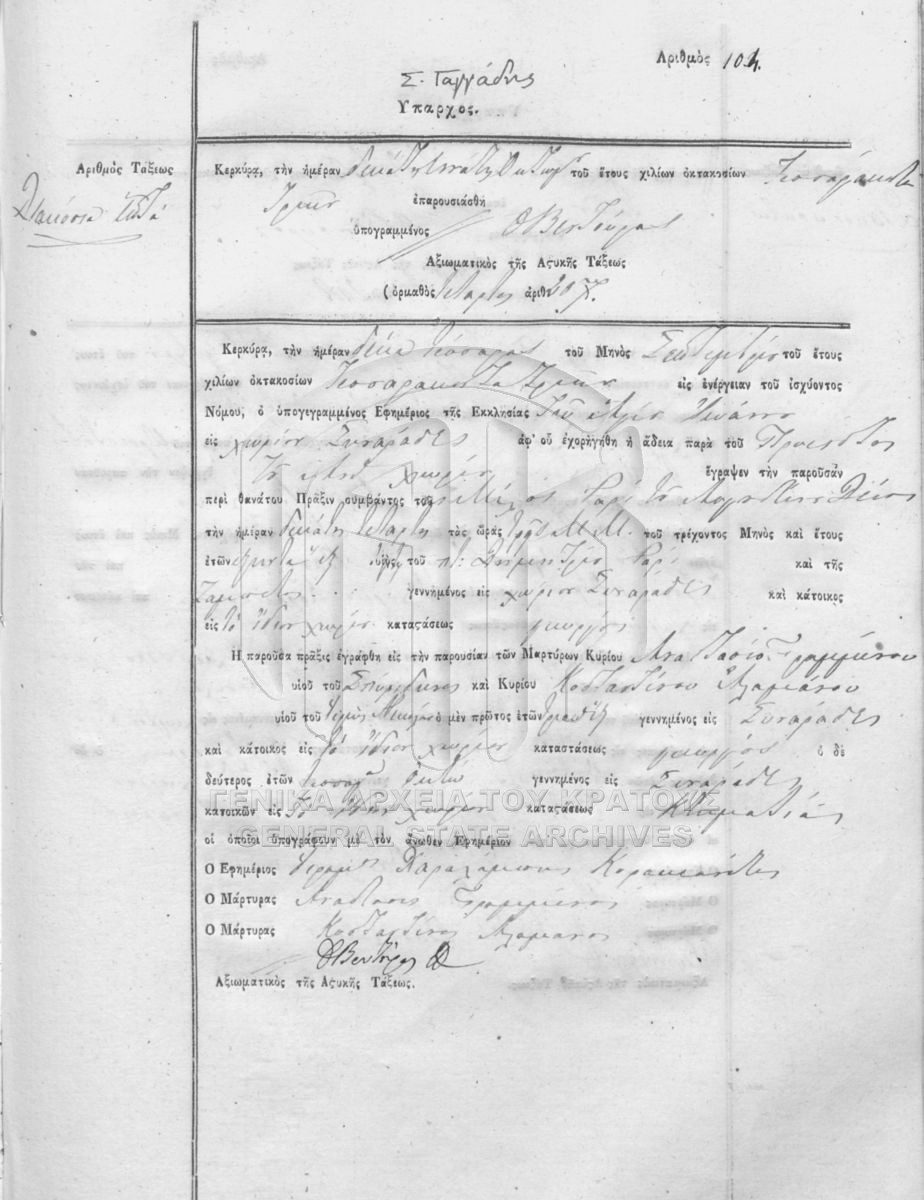 Αριθμὸς 104.
Σ. Γαγγάδης
Υπαρχος.
Αριθμὸς Τάξεως
Διακόσια ἑπτά
Κερκύρα, τὴν ἡμέραν δεκάτην ἐννάτην τοῦ ἔτους χιλίων ὀκτακοσίων Τεσσαράκοντα
Τριῶν ἐπαρουσιάσθη
ὑπογραμμένος Βεντούρας
Αξιωματικὸς τῆς Αςυκῆς Τάξεως
(ὁρμαθὸς τέταρτος ἀριθ: 207.
Κερκύρα, τὴν ἡμέραν δέκα τέσσαρας τοῦ Μηνὸς Σεπτεμβρίο τοῦ ἔτους
χιλίων ὀκτακοσίων Τεσσαρακοντα Τριῶν εἰς ἐνέργειαν τοῦ ἰσχύοντος
Νόμου, ὁ ὑπογεγραμμένος Εφημέριος τῆς Εκκλησίας Τοῦ Ἁγίο Ἰωάννο
εἰς χωρίον Συναράδες ἀφ' οὗ ἐχορηγήθη ἡ ἄδεια παρὰ τοῦ Προεστος
χωρίο ἔγραψεν τὴν παροῦσαν
περὶ θανάτου Πρᾶξιν συμβάντος τοῦ
τὴν ἡμέραν δεκάτη τετάρτη τὰς ὥρας Μ.Μ. τοῦ τρέχοντος Μηνὸς καὶ ἔτους
ἐτῶν ἑξηντα ἕξ υἱὸς τοῦ π: Δημητρίο καὶ τῆς
Ζαμπετας γεννημένος εἰς χωρίον Συναράδες καὶ κάτοικος
εἰς τὸ ἴδιον χωρίον καταςάσεως γεωργὸς
Η παροῦσα πρᾶξις ἐγράφθη εἰς τὴν παρουσίαν τῶν Μαρτύρων Κυρίου Αναστασίο Γραμμένου
υἱοῦ τοῦ Σπυρίδωνος καὶ Κυρίου Κοσταντίνου Αλαμάνου
υἱοῦ τοῦ Νικολάο ὁ μὲν πρῶτος ἐτῶν γεννημένος εἰς Συναράδες
καὶ κάτοικος εἰς τὸ ἴδιον χωρίον καταστάσεως γεωργὸς ὁ δὲ
δεύτερος ἐτῶν ὀκτώ γεννημένος εἰς Συναράδες
κατοικῶν εἰς Τὸ ἴδιον χωρίον καταςάσεως Κτηματίας
οἱ ὁποῖοι ὑπογράφουν μὲ τὸν ἄνωθεν Εφημέριον
Ο Εφημέριος Χαραλάμπης
Ο Μάρτυρας Αναστασις Γραμμένος
Ο Μάρτυρας Κοσταντίνος Αλαμανος
Βεντούρας
Αξιωματικὸς τῆς Αςυκῆς Τάξεως.
ΓΕΝΙΚΑ ΑΡΧΕΙΑ ΤΟΥ ΚΡΑΤΟΥΣ
GENERAL STATE ARCHIVES